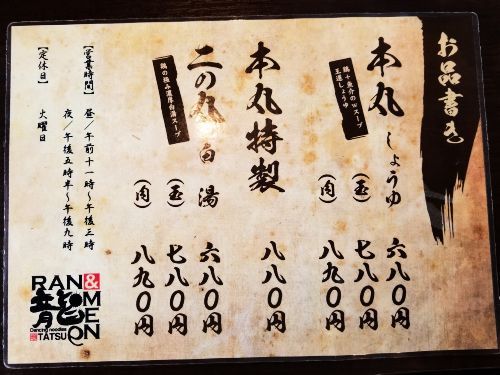 お品書き
本丸 しょうゆ 六八〇円
鶏+魚介のWスープ
王道しょうゆ
(玉) 七八〇円
(肉) 八九〇円
本丸特製 八八〇円
二の丸 白湯 六八〇円
鶏の極み濃厚白湯スープ
(玉) 七八〇円
(肉) 八九〇円
【営業時間】 昼/午前十一時〜午後三時
夜/午後五時半〜午後九時
【定休日】 火曜日
RAN&
MEN
龍
Dancing noodles
TATSU